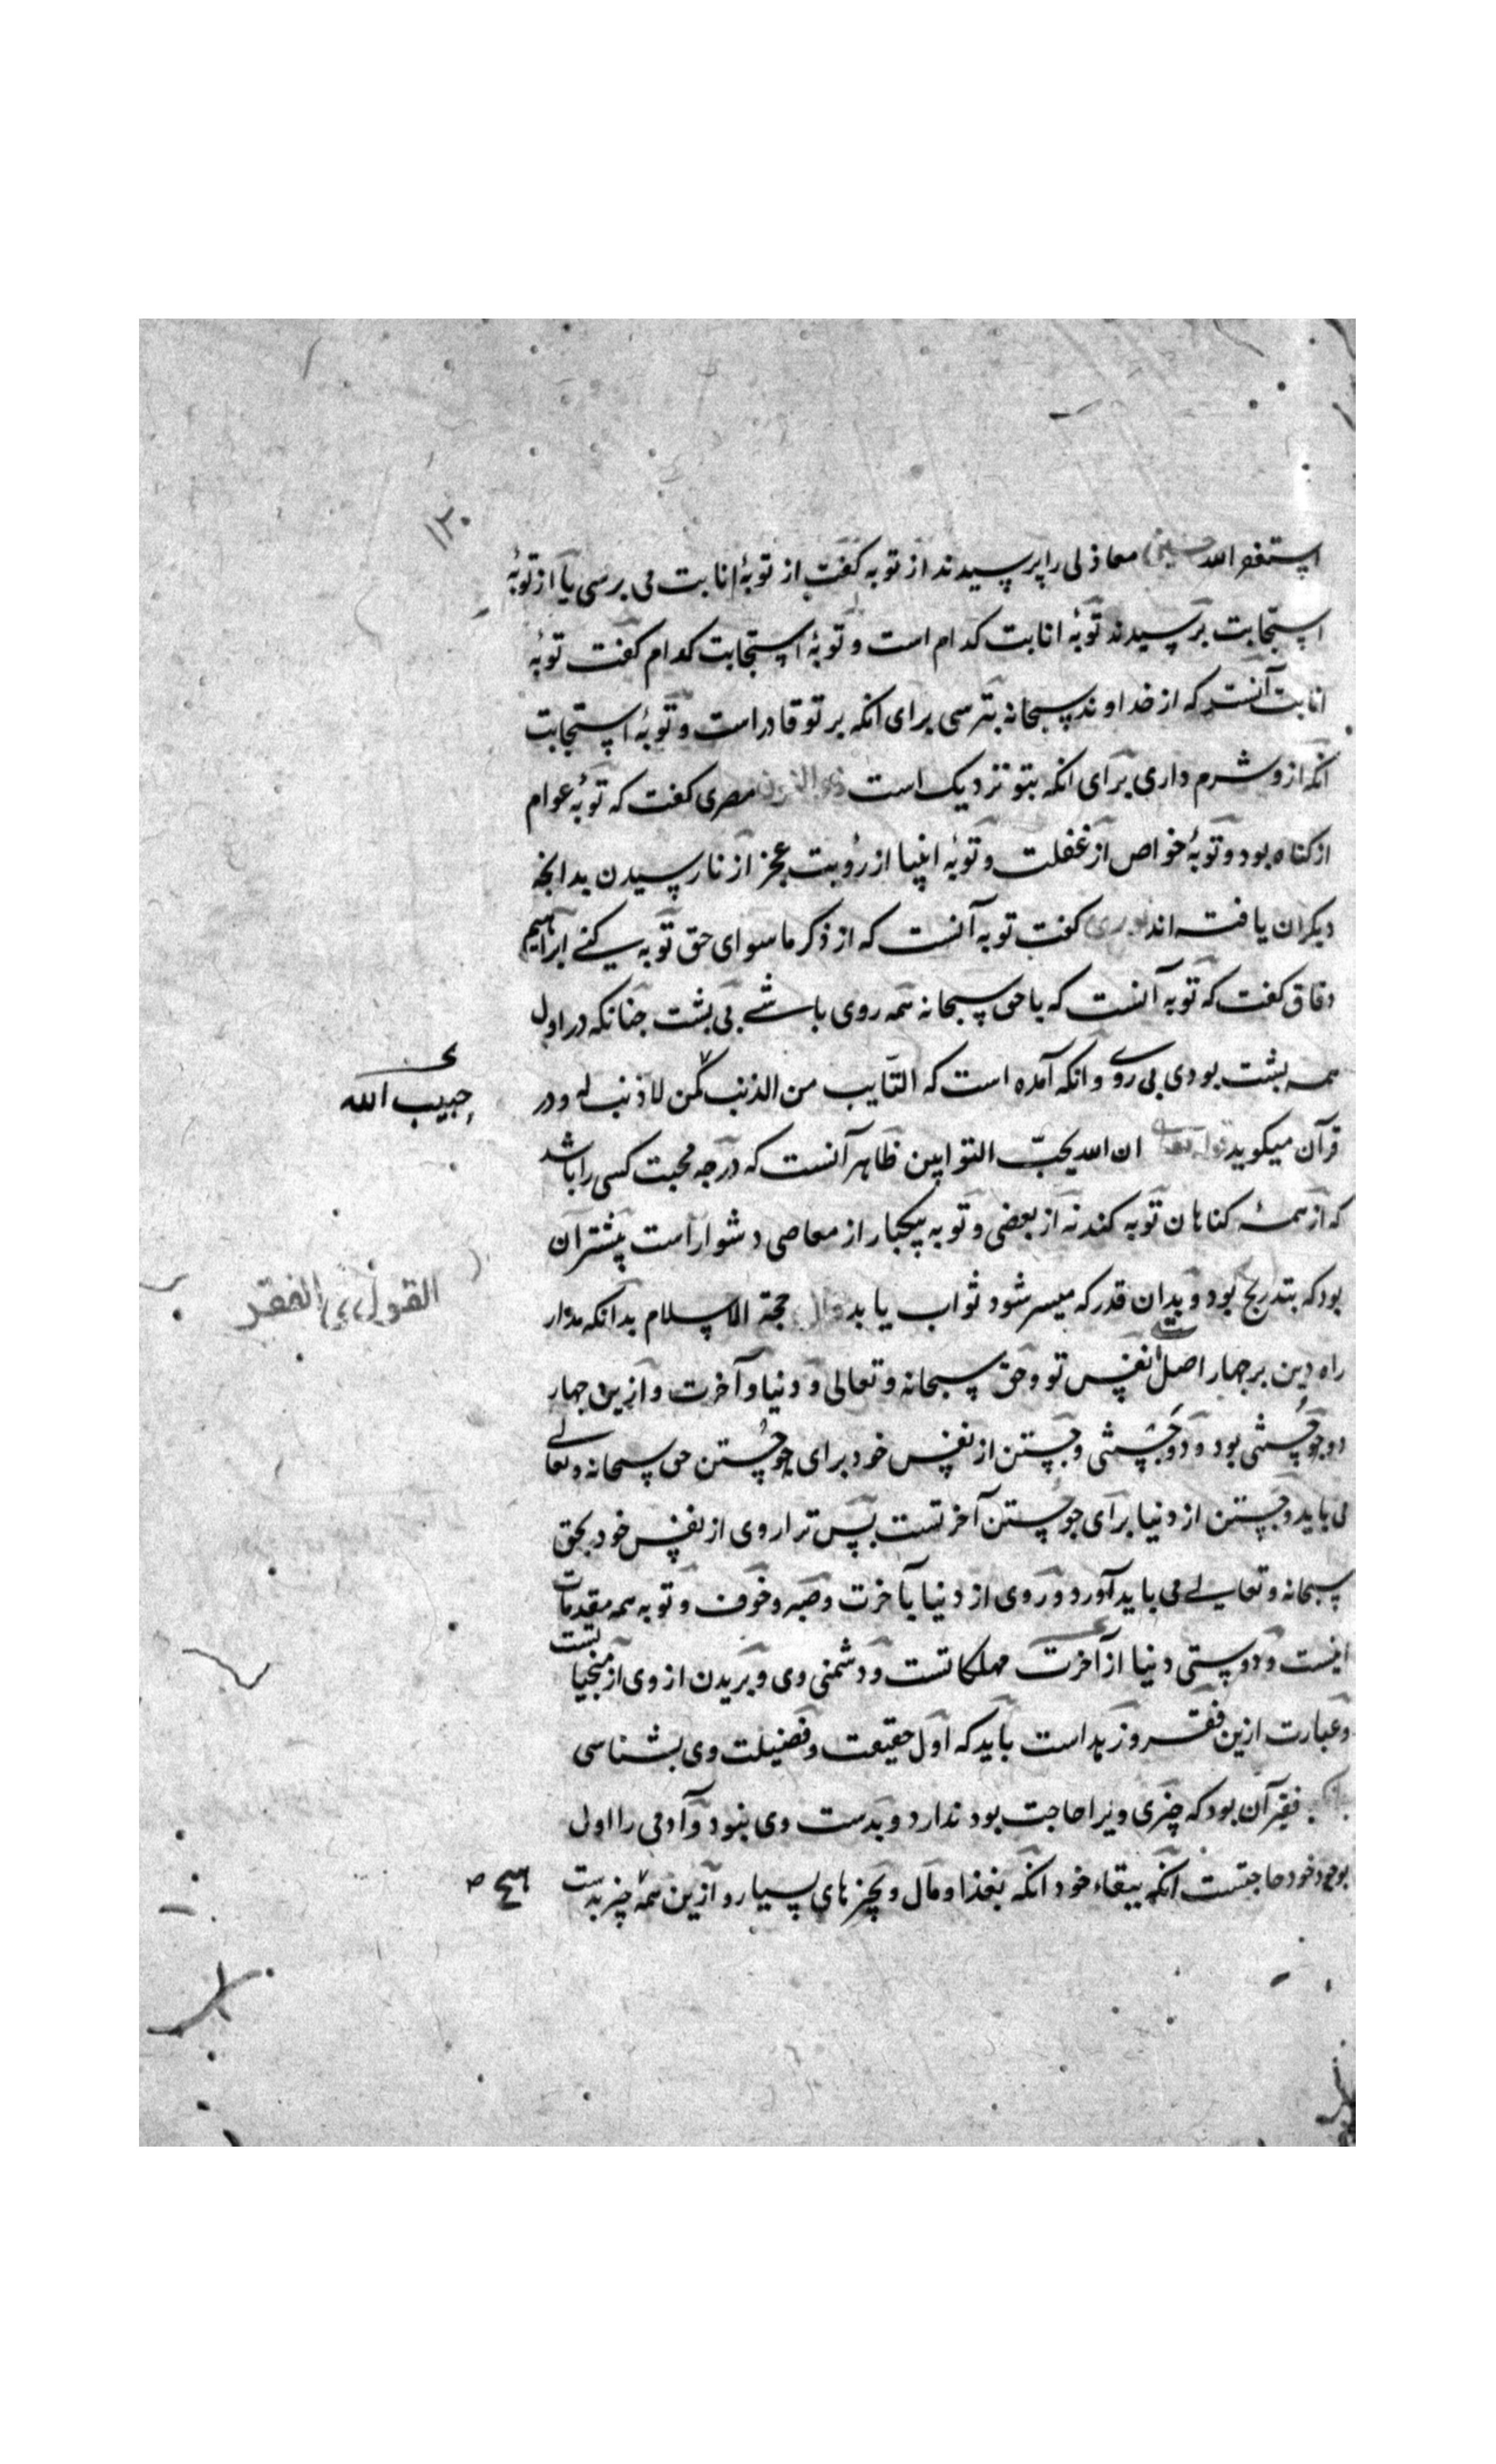 ١٢٠
استغفر الله حسین معاذلی را پرسیدند از توبه کفت از توبهٔ انابت می برسی یا از توبهٔ
استجابت برسیدند توبهٔ انابت کدام است و توبهٔ استجابت کدام کفت توبهٔ
انابت آنست که از خداوند سبحانه بترسی برای انکه بر تو قادر است و توبهٔ استجابت
انکه ازو شرم داری برای انکه بتو نزدیک است ذو النون مصری کفت که توبهٔ عوام
از کناه بود و توبهٔ خواص از غفلت و توبهٔ انبیا از رؤیت عجز از نارسیدن بدانجه
دیکران یافته اند نوری کفت توبه آنست که از ذکر ماسوای حق توبه کنے ابراهیم
دقاق کفت که توبه آنست که باحق سبحانه همه روی باشے بی بشت جنانکه در اول
همه بشت بودی بی روے وانکه آمده است که التایب من الذنب کمن لا ذنب له ودر
حبیب الله
قرآن میکوید قوله تعالی ان الله یحبّ التوابین ظاهر آنست که درجه محبت کسی را باشد
که از همهٔ کناهان توبه کند نه از بعضی و توبه بیکبار از معاصی دشوار است پیشتر آن
بود که بتدریج بود و بدان قدر که میسر شود ثواب یابد قال حجة الاسلام بدانکه مدار
القول فی الفقر
راه دین بر جهار اصل است نفس تو و حق سبحانه و تعالی و دنیا و آخرت و ازین جهار
دو جستنی بود و دو جستنی و جستن از نفس خود برای جستن حق سبحانه و تعالے
می باید و جستن از دنیا برای جستن آخرتست پس ترا روی از نفس خود بحق
سبحانه و تعالے می باید آورد و روی از دنیا بآخرت و صبر و خوف و توبه همه مقدمات
اینست و دوستی دنیا از آخرت مهلکاتست و دشمنی وی و بریدن از وی از منجیاتست
و عبارت ازین فقر و زهد است باید که اول حقیقت و فضیلت وی بشناسی
فقیر آن بود که چیزی ویرا حاجت بود ندارد و بدست وی نبود و آدمی را اول
بوجود خود حاجتست آنکه ببقاء خود انکه بغذا و مال و بچیزهای بسیار و ازین همه چیز بدست
هیچ